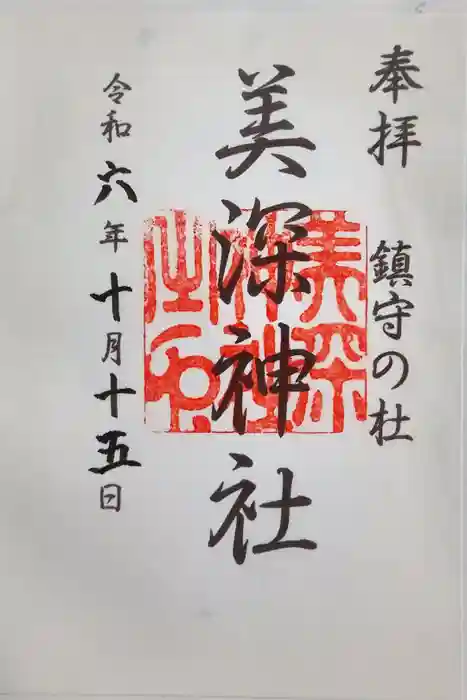 奉拝
鎮守の杜
美深神社
美深
神社
之印
令和六年十月十五日